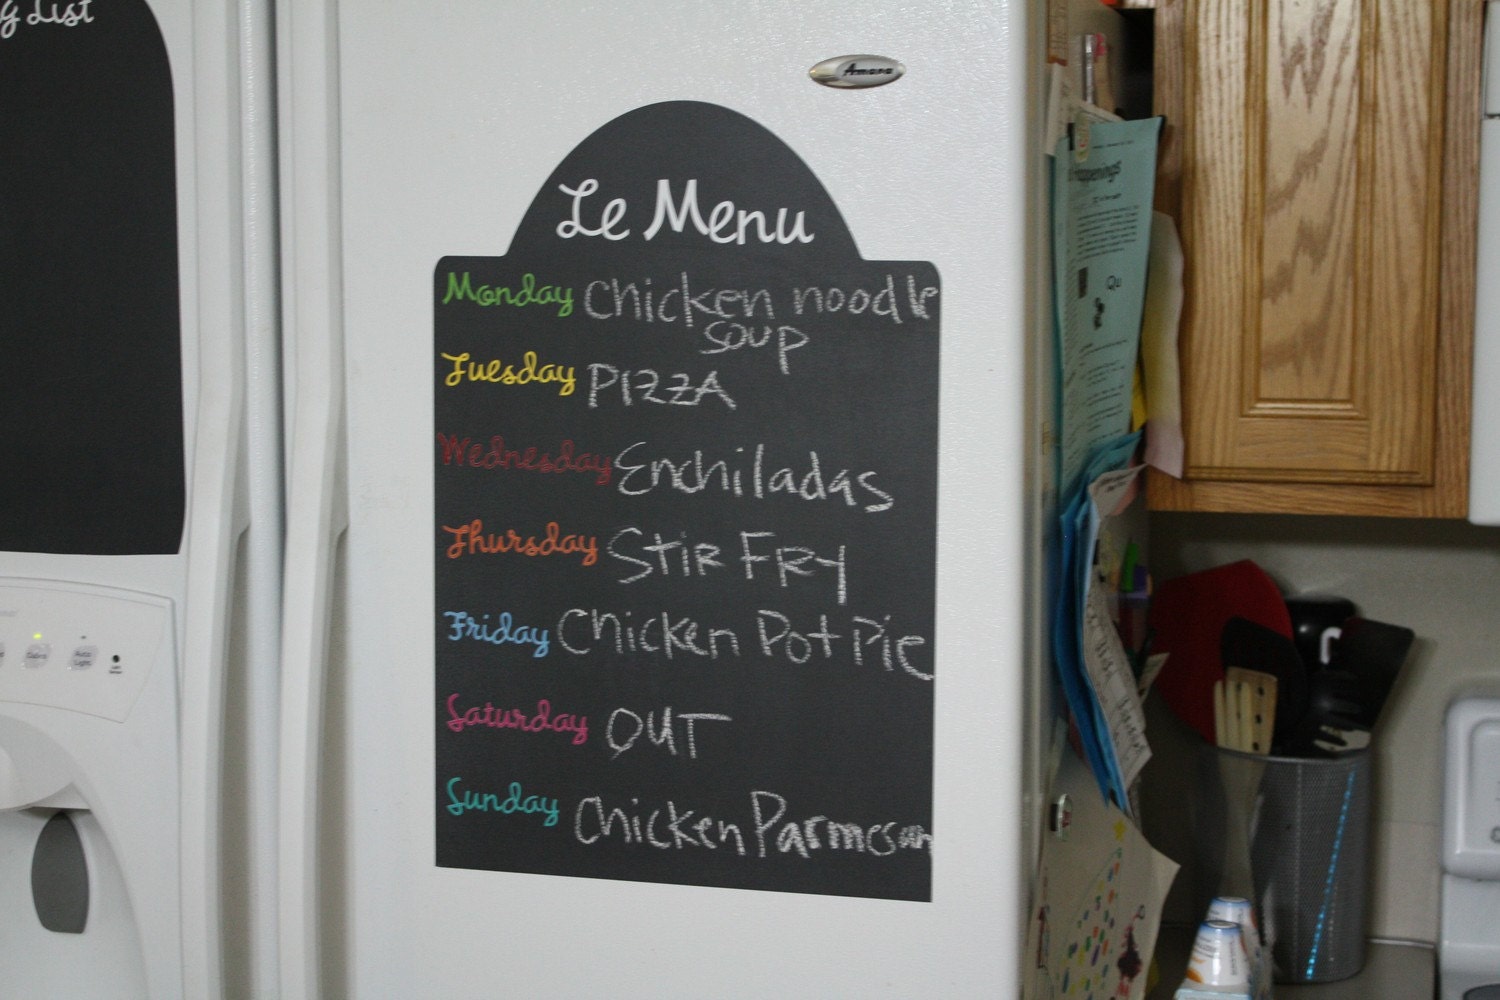 g List
Amana
Le Menu
Monday chicken noodle
soup
Tuesday PIZZA
Wednesday Enchiladas
Thursday STIR FRY
Friday Chicken Pot Pie
Saturday OUT
Sunday Chicken Parmesan
appenings
Qu